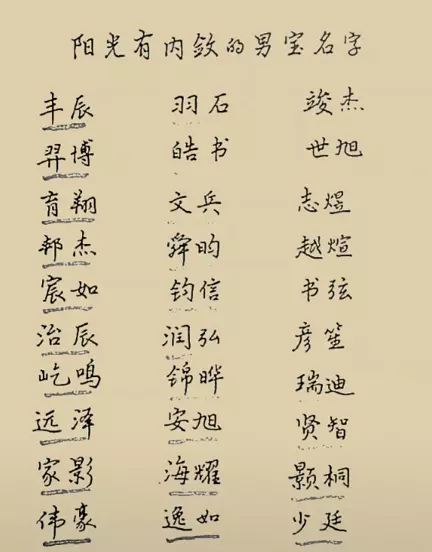 阳光有内敛的男宝名字
丰辰 羽石 竣杰
羿博 皓书 世旭
育翔 文兵 志煜
邦杰 舜昀 越煊
宸如 钧信 书弦
治辰 润弘 彦笙
屹鸣 锦晔 瑞迪
远泽 安旭 贤智
家影 海耀 颢桐
伟豪 逸如 少廷